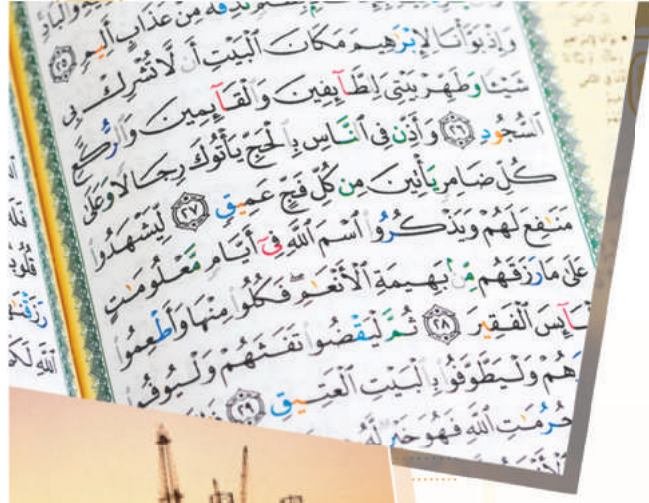 نُّذِقْهُ مِنْ عَذَابٍ أَلِيمٍ ٢٥
وَإِذْ بَوَّأْنَا لِإِبْرَٰهِيمَ مَكَانَ ٱلْبَيْتِ أَن لَّا تُشْرِكْ بِى
شَيْـًٔا وَطَهِّرْ بَيْتِىَ لِلطَّآئِفِينَ وَٱلْقَآئِمِينَ وَٱلرُّكَّعِ
ٱلسُّجُودِ ٢٦ وَأَذِّن فِى ٱلنَّاسِ بِٱلْحَجِّ يَأْتُوكَ رِجَالًا وَعَلَىٰ
كُلِّ ضَامِرٍ يَأْتِينَ مِن كُلِّ فَجٍّ عَمِيقٍ ٢٧ لِّيَشْهَدُوا۟
مَنَـٰفِعَ لَهُمْ وَيَذْكُرُوا۟ ٱسْمَ ٱللَّهِ فِىٓ أَيَّامٍ مَّعْلُومَـٰتٍ
عَلَىٰ مَا رَزَقَهُم مِّنۢ بَهِيمَةِ ٱلْأَنْعَـٰمِ ۖ فَكُلُوا۟ مِنْهَا وَأَطْعِمُوا۟
ٱلْبَآئِسَ ٱلْفَقِيرَ ٢٨ ثُمَّ لْيَقْضُوا۟ تَفَثَهُمْ وَلْيُوفُوا۟
وَلْيَطَّوَّفُوا۟ بِٱلْبَيْتِ ٱلْعَتِيقِ ٢٩
حُرُمَـٰتِ ٱللَّهِ فَهُوَ خَيْرٌ لَّهُۥ